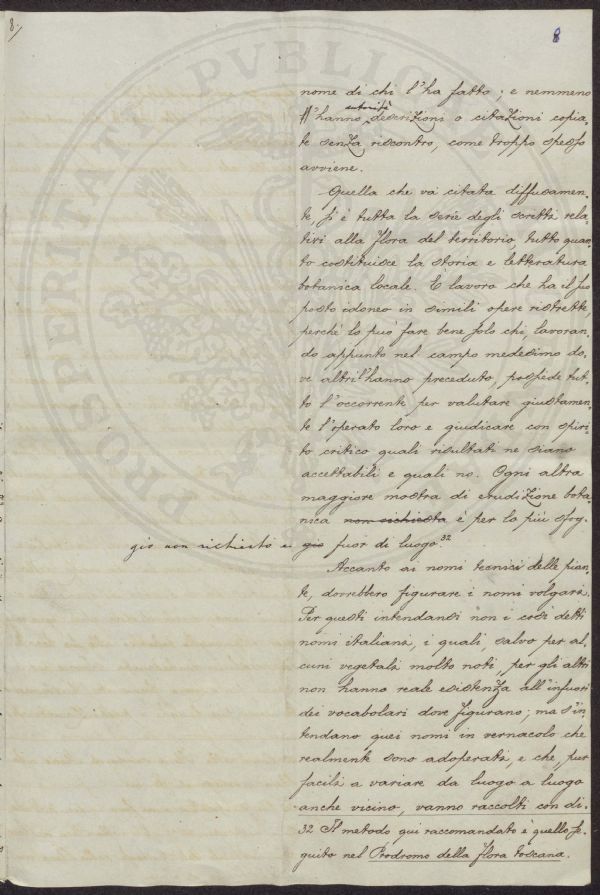 8./
8
nome di chi l'ha fatto; e nemmeno
l'hanno autorità descrizioni o citazioni copia-
te senza riscontro, come troppo spesso
avviene.
Quella che va citata diffusamen-
te, si è tutta la serie degli scritti rela-
tivi alla flora del territorio, tutto quan-
to costituisce la storia e letteratura
botanica locale. È lavoro che ha il suo
posto idoneo in simili opere ristrette,
perchè lo può fare bene solo chi, lavoran-
do appunto nel campo medesimo do-
ve altri l'hanno preceduto, possiede tut-
to l'occorrente per valutare giustamen-
te l'operato loro e giudicare con spiri-
to critico quali risultati ne siano
accettabili e quali no. Ogni altra
maggiore mostra di erudizione bota-
nica non richiesta è per lo più sfog-
gio non richiesto e gio fuor di luogo.32
Accanto ai nomi tecnici delle pian-
te, dovrebbero figurare i nomi volgari.
Per questi intendansi non i così detti
nomi italiani, i quali, salvo per al-
cuni vegetali molto noti, per gli altri
non hanno reale esistenza all'infuori
dei vocabolari dove figurano; ma s'in-
tendano quei nomi in vernacolo che
realmente sono adoperati, e che, pur
facili a variare da luogo a luogo
anche vicino, vanno raccolti con di-
32 Il metodo qui raccomandato è quello se-
guito nel Prodromo della flora toscana.
PROSPERITATI PVBLICAE